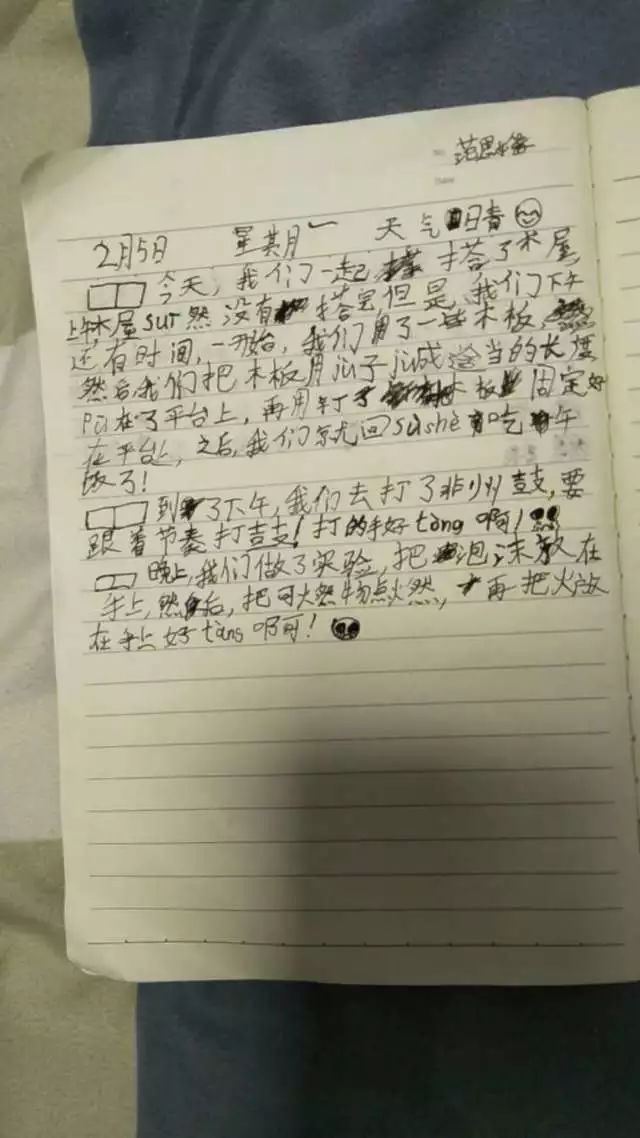 No.
Date
2月5日 星期一 天气晴
今天,我们一起搭了木屋,
上午木屋suī然没有搭完但是,我们下午
还有时间,一开始,我们用了一些木板,
然后我们把木板用jù子jù成适当的长度
pū在了平台上,再用钉木板固定好
在平台上,之后,我们就回sùshè吃午
饭了!
到了下午,我们去打了非州鼓,要
跟着节奏打鼓!打的手好tàng啊!
晚上,我们做了实验,把泡沫放在
手上,然后,把可火然物点火然,再把火放
在手上好tàng啊!